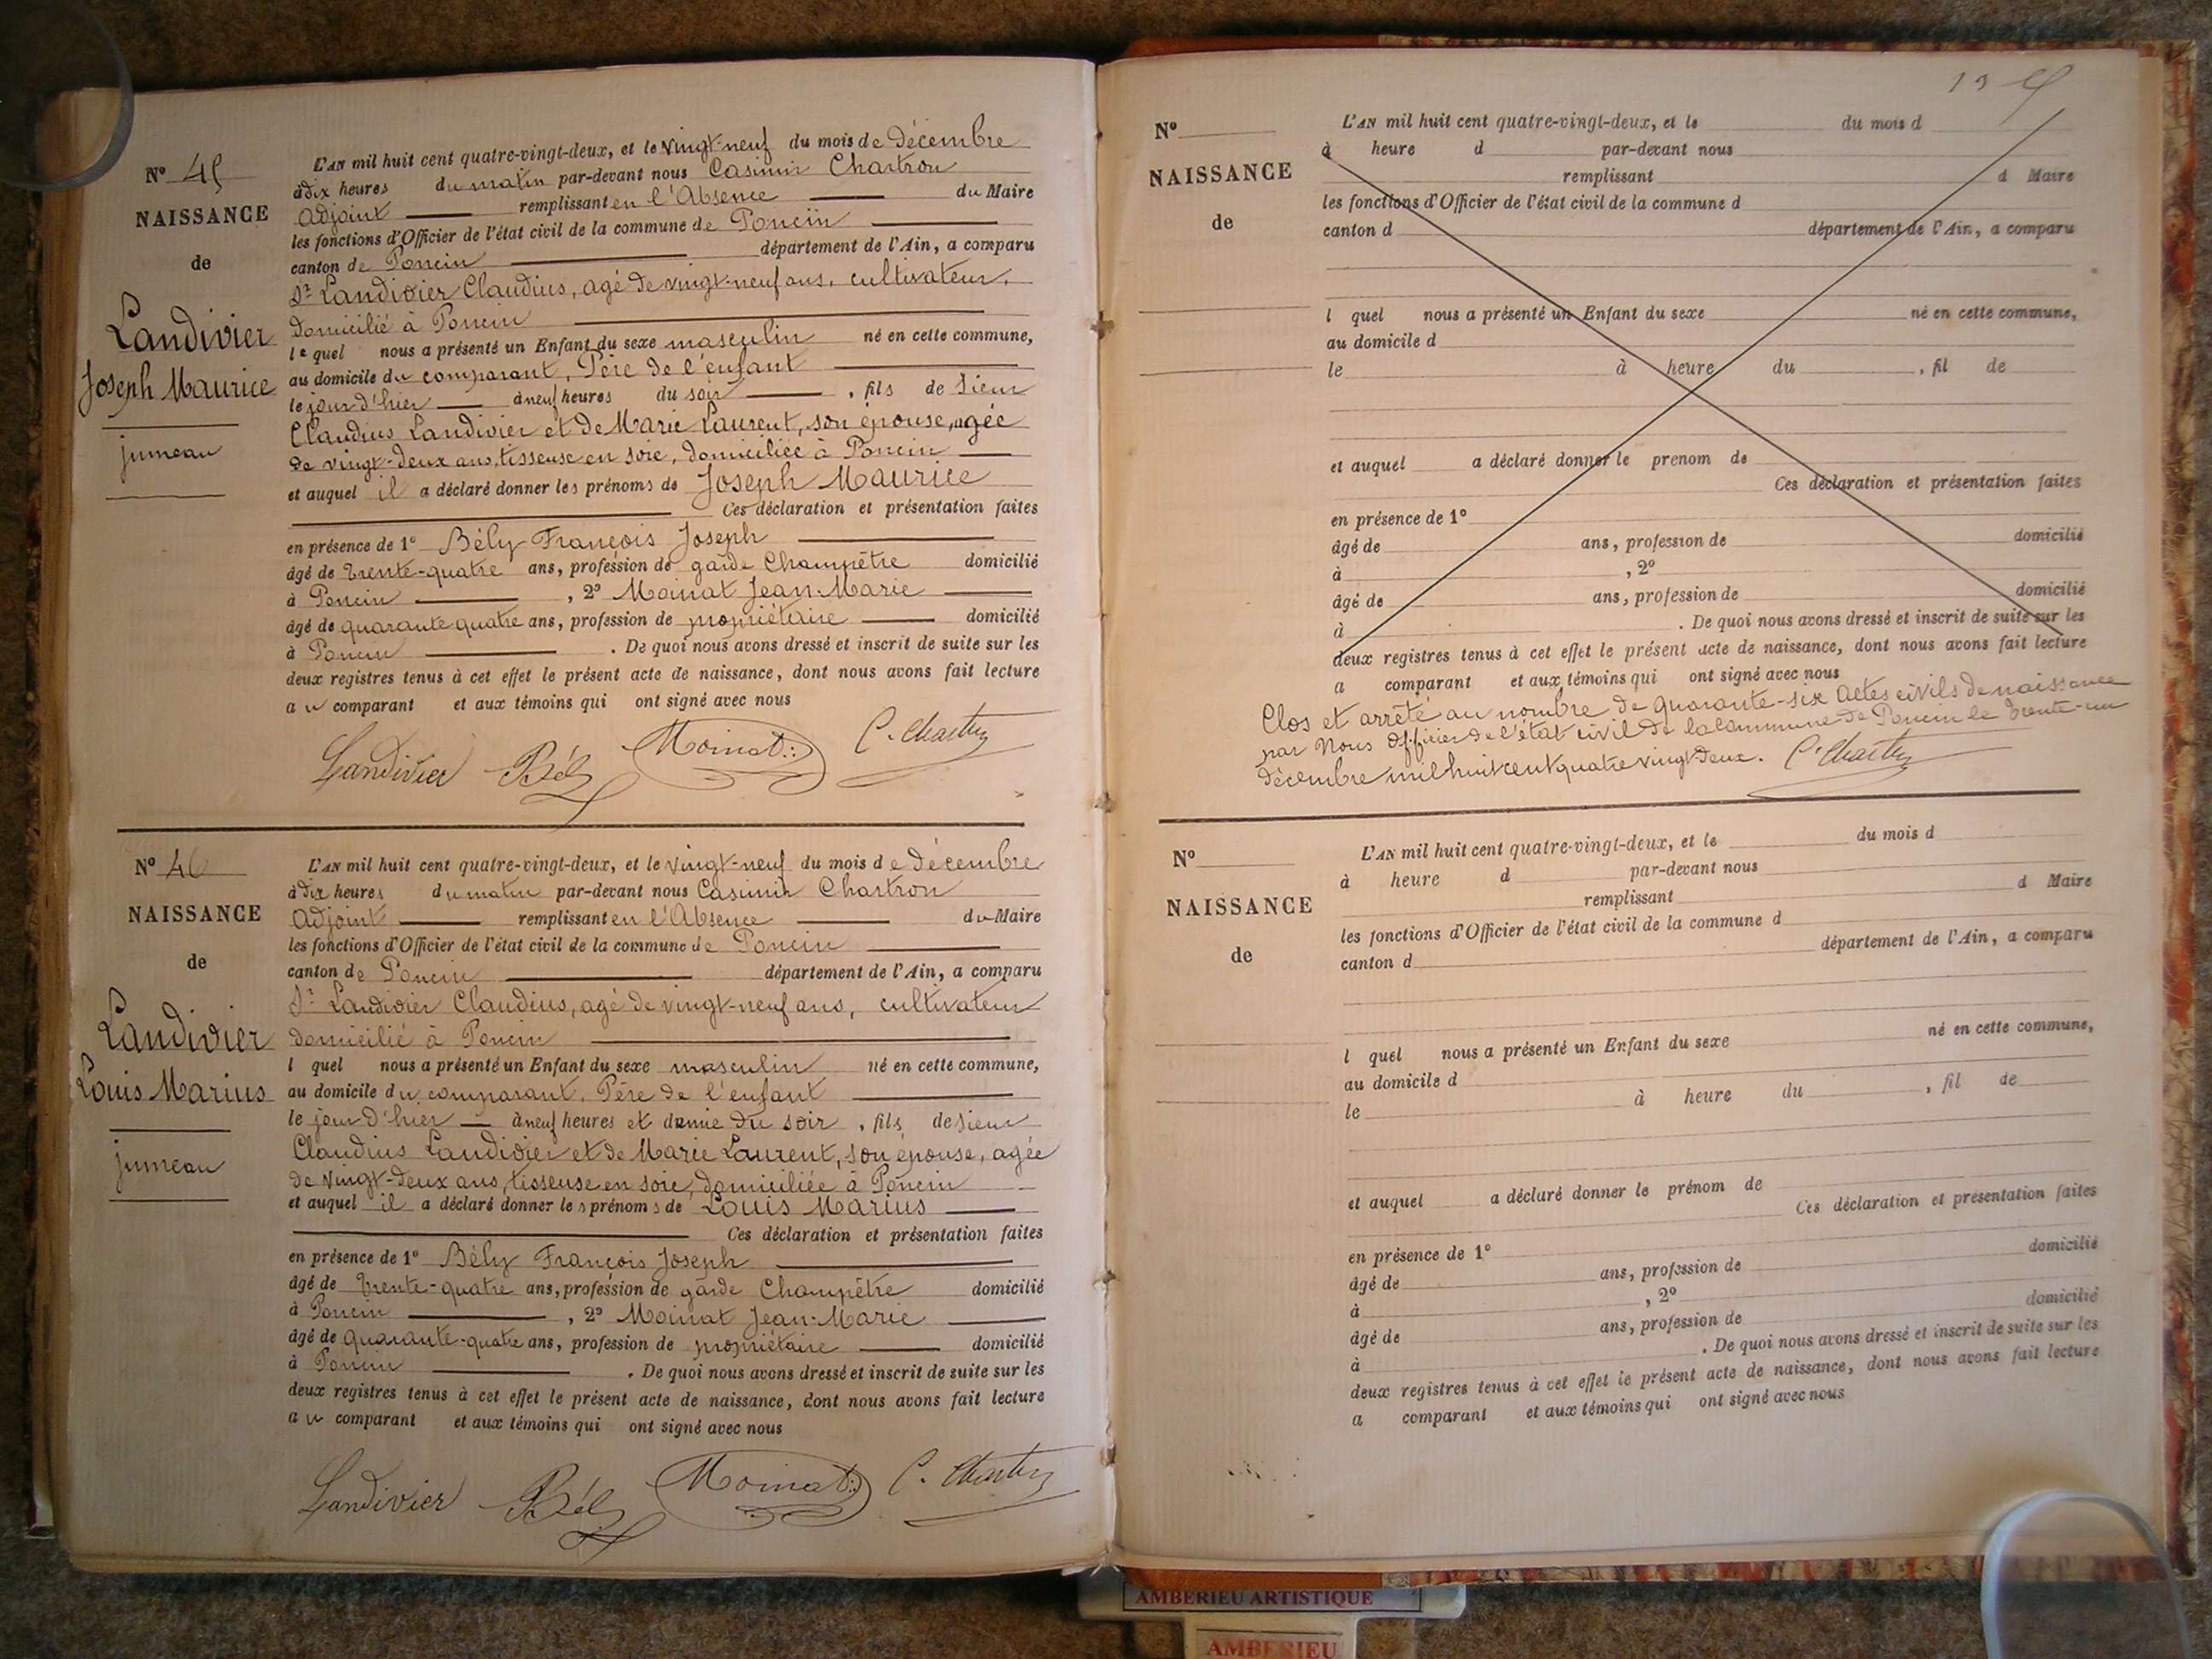 Nº 45
NAISSANCE
de
Landivier
Joseph Maurice
jumeau
L'AN mil huit cent quatre-vingt-deux, et le vingt-neuf du mois de Décembre
à dix heures du matin par-devant nous Casimir Chartron
Adjoint remplissant en l'Absence du Maire
les fonctions d'Officier de l'état civil de la commune de Poncin
canton de Poncin département de l'Ain, a comparu
Sr Landivier Claudius, agé de vingt-neuf ans, cultivateur,
domicilié à Poncin
lequel nous a présenté un Enfant du sexe masculin né en cette commune,
au domicile du comparant, Père de l'enfant
le jour d'hier à neuf heures du soir, fils de Sieur
Claudius Landivier et de Marie Laurent, son épouse, agée
de vingt-deux ans, tisseuse en soie, domiciliée à Poncin
et auquel il a déclaré donner les prénoms de Joseph Maurice
Ces déclaration et présentation faites
en présence de 1º Bély François Joseph
âgé de trente-quatre ans, profession de garde Champêtre domicilié
à Poncin, 2º Moinat Jean-Marie
âgé de quarante quatre ans, profession de propriétaire domicilié
à Poncin. De quoi nous avons dressé et inscrit de suite sur les
deux registres tenus à cet effet le présent acte de naissance, dont nous avons fait lecture
au comparant et aux témoins qui ont signé avec nous
Landivier Bély Moinat C. Chartron
Nº 46
NAISSANCE
de
Landivier
Louis Marius
jumeau
L'AN mil huit cent quatre-vingt-deux, et le vingt-neuf du mois de Décembre
à dix heures du matin par-devant nous Casimir Chartron
Adjoint remplissant en l'Absence du Maire
les fonctions d'Officier de l'état civil de la commune de Poncin
canton de Poncin département de l'Ain, a comparu
Sr Landivier Claudius, agé de vingt-neuf ans, cultivateur
domicilié à Poncin
l quel nous a présenté un Enfant du sexe masculin né en cette commune,
au domicile du comparant, Père de l'enfant
le jour d'hier à neuf heures et demie du soir, fils de Sieur
Claudius Landivier et de Marie Laurent, son épouse, agée
de vingt-deux ans, tisseuse en soie, domiciliée à Poncin
et auquel il a déclaré donner les prénoms de Louis Marius
Ces déclaration et présentation faites
en présence de 1º Bély François Joseph
âgé de trente-quatre ans, profession de garde Champêtre domicilié
à Poncin, 2º Moinat Jean-Marie
âgé de quarante-quatre ans, profession de propriétaire domicilié
à Poncin. De quoi nous avons dressé et inscrit de suite sur les
deux registres tenus à cet effet le présent acte de naissance, dont nous avons fait lecture
au comparant et aux témoins qui ont signé avec nous
Landivier Bély Moinat C. Chartron
13
Nº
NAISSANCE
de
L'AN mil huit cent quatre-vingt-deux, et le du mois d
à heure d par-devant nous
remplissant d Maire
les fonctions d'Officier de l'état civil de la commune d
canton d département de l'Ain, a comparu
l quel nous a présenté un Enfant du sexe né en cette commune,
au domicile d
le à heure du , fil de
et auquel a déclaré donner le prenom de
Ces déclaration et présentation faites
en présence de 1º
âgé de ans, profession de domicilié
à , 2º
âgé de ans, profession de domicilié
à . De quoi nous avons dressé et inscrit de suite sur les
deux registres tenus à cet effet le présent acte de naissance, dont nous avons fait lecture
a comparant et aux témoins qui ont signé avec nous
Clos et arrêté au nombre de quarante-six Actes civils de naissance
par Nous Officier de l'état civil de la commune de Poncin le trente-un
décembre mil huit cent quatre vingt-deux. C. Chartron
Nº
NAISSANCE
de
L'AN mil huit cent quatre-vingt-deux, et le du mois d
à heure d par-devant nous
remplissant d Maire
les fonctions d'Officier de l'état civil de la commune d
canton d département de l'Ain, a comparu
l quel nous a présenté un Enfant du sexe né en cette commune,
au domicile d
le à heure du , fil de
et auquel a déclaré donner le prénom de
Ces déclaration et présentation faites
en présence de 1º
âgé de ans, profession de domicilié
à , 2º
âgé de ans, profession de domicilié
à . De quoi nous avons dressé et inscrit de suite sur les
deux registres tenus à cet effet le présent acte de naissance, dont nous avons fait lecture
a comparant et aux témoins qui ont signé avec nous
AMBERIEU ARTISTIQUE
AMBERIEU